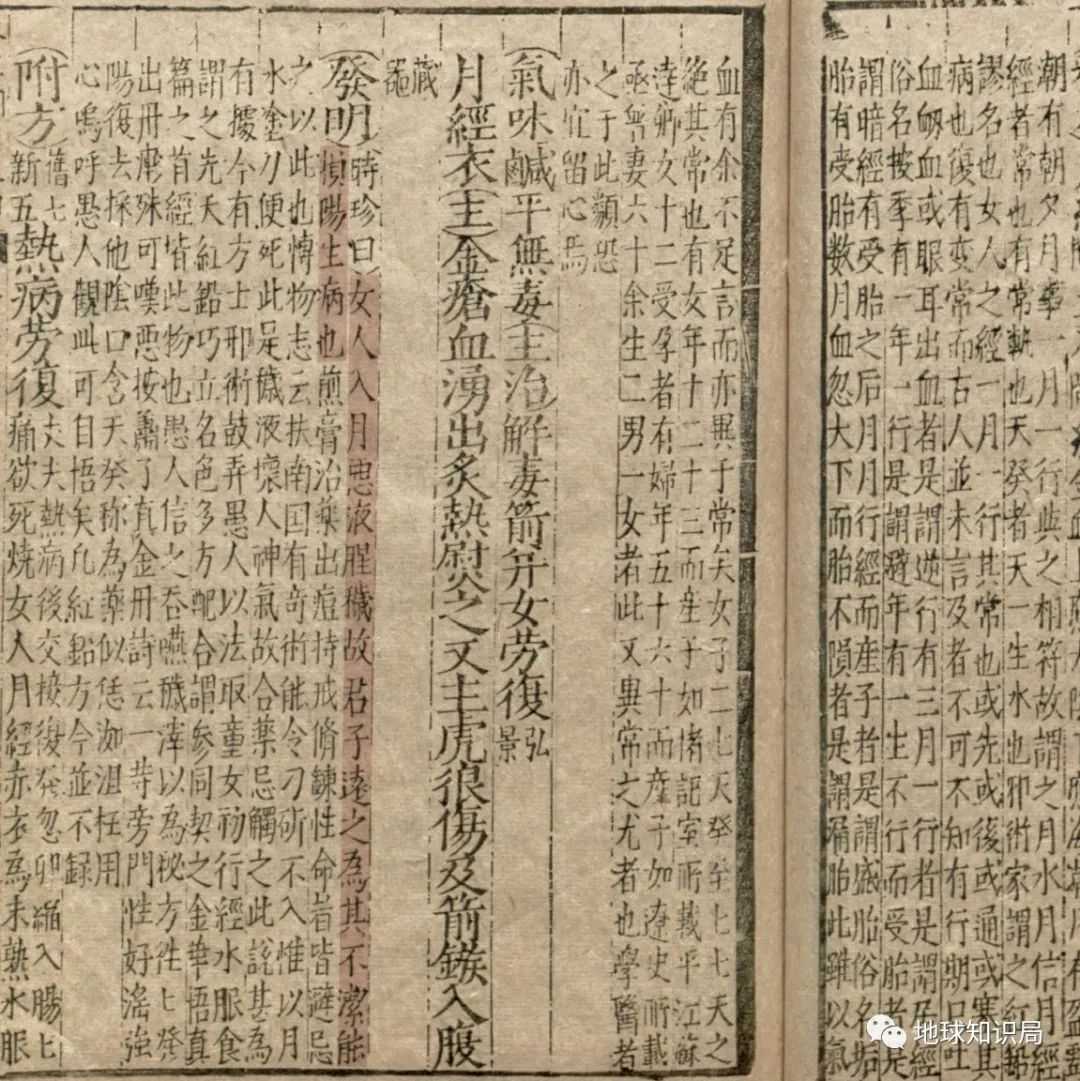 朝有朝夕月事一月一行與之相符故謂之月水月信月經
經者常也有常軌也天癸者天一生水也邪術家謂之紅鉛
謬名也女人之經一月一行其常也或先或後或通或塞其
病也復有变常而古人並未言及者不可不知有行期只吐
血衂血或眼耳出血者是謂逆行有三月一行者是謂居經
俗名按季有一年一行是謂避年有一生不行而受胎者是
謂暗經有受胎之后月月行經而産子者是謂盛胎俗名垢
胎有受胎数月血忽大下而胎不隕者是謂漏胎此雖以氣
血有余不足言而亦異于常矣女子二七天癸至七七天之
絕其常也有女年十二十三而産子如褚記室所載平江蘇
達卿女十二受孕者有婦年五十六十而産子如遼史所載
亟普妻六十余生二男一女者此又異常之尤者也學醫者
之于此類恐
亦宜留心焉
(氣味)鹹平無毒(主治)解毒箭并女勞復弘景
月經衣(主)金瘡血湧出炙熱熨之又主虎狼傷及箭鏃入腹
藏器
(發明)(時珍曰)女人入月惡液腥穢故君子遠之為其不潔能
損陽生病也煎膏治藥出痘持戒脩鍊性命者皆避忌
之以此也博物志云扶南国有奇術能令刀斫不入惟以月
水塗刀便死此是穢液壞人神氣故合藥忌觸之此說甚為
有據今有方士邪術鼓弄愚人以法取童女初行經水服食
謂之先天紅鉛巧立名色多方配合謂參同契之金華悟真
篇之首經皆此物也愚人信之吞嚥穢滓以為秘方徃七發
出丹疹殊可嘆惡按蕭了真金丹詩云一等旁門性好滛強
陽復去採他陰口含天癸称為藥似恁洳沮枉用
心嗚呼愚人觀此可自悟矣凡紅鉛方今並不録
(附方)舊七新五熱病勞復丈夫熱病後交接復發忽卵縮入腸七
痛欲死燒女人月經赤衣為末熟水服
地球知识局